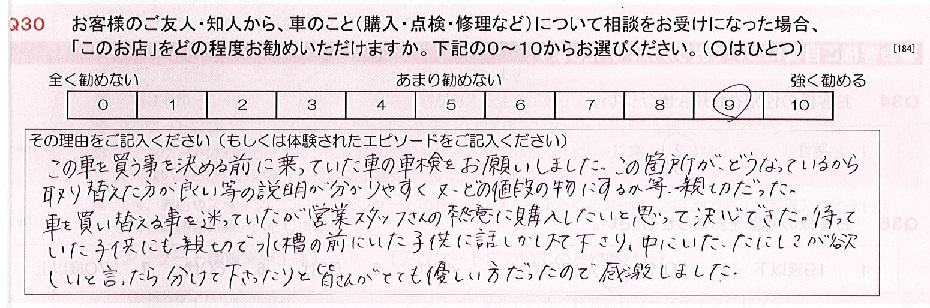 Q30 お客様のご友人・知人から、車のこと(購入・点検・修理など)について相談をお受けになった場合、
「このお店」をどの程度お勧めいただけますか。下記の0～10からお選びください。(○はひとつ) [184]
全く勧めない あまり勧めない 強く勧める
0 1 2 3 4 5 6 7 8 9 10
その理由をご記入ください(もしくは体験されたエピソードをご記入ください)
この車を買う事を決める前に乗っていた車の車検をお願いしました。この箇所が、どうなっているから
取り替えた方が良い等の説明が分かりやすく又、どの値段の物にするか等、親切だった。
車を買い替える事を迷っていたが営業スタッフさんの熱意に購入したいと思って決心できた。待って
いた子供にも親切で水槽の前にいた子供に話しかけて下さり、中にいた、たにしさが欲
しいと言ったら分けて下さったりと皆さんがとても優しい方だったので感激しました。